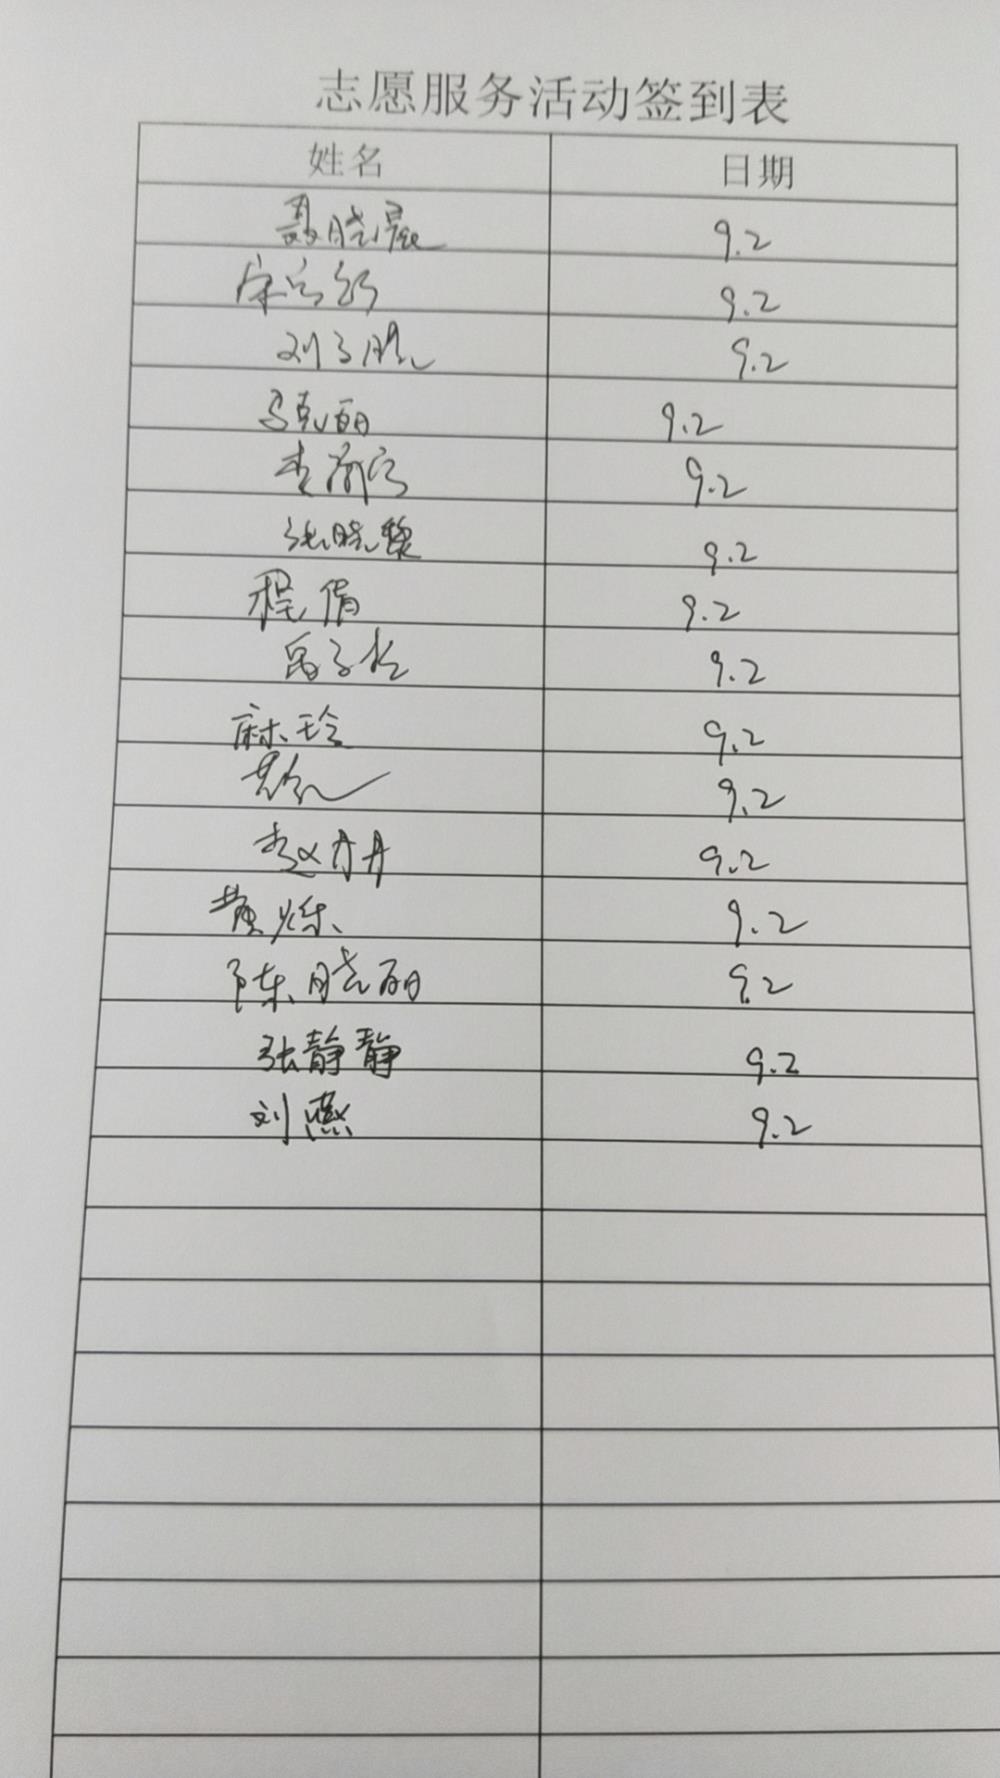 志愿服务活动签到表
姓名 日期
聂晓晨 9.2
9.2
刘子 9.2
马克丽 9.2
李 9.2
张晓黎 9.2
程倩 9.2
9.2
麻玲 9.2
9.2
赵丹丹 9.2
黄烁 9.2
陈晓丽 9.2
张静静 9.2
刘燕 9.2